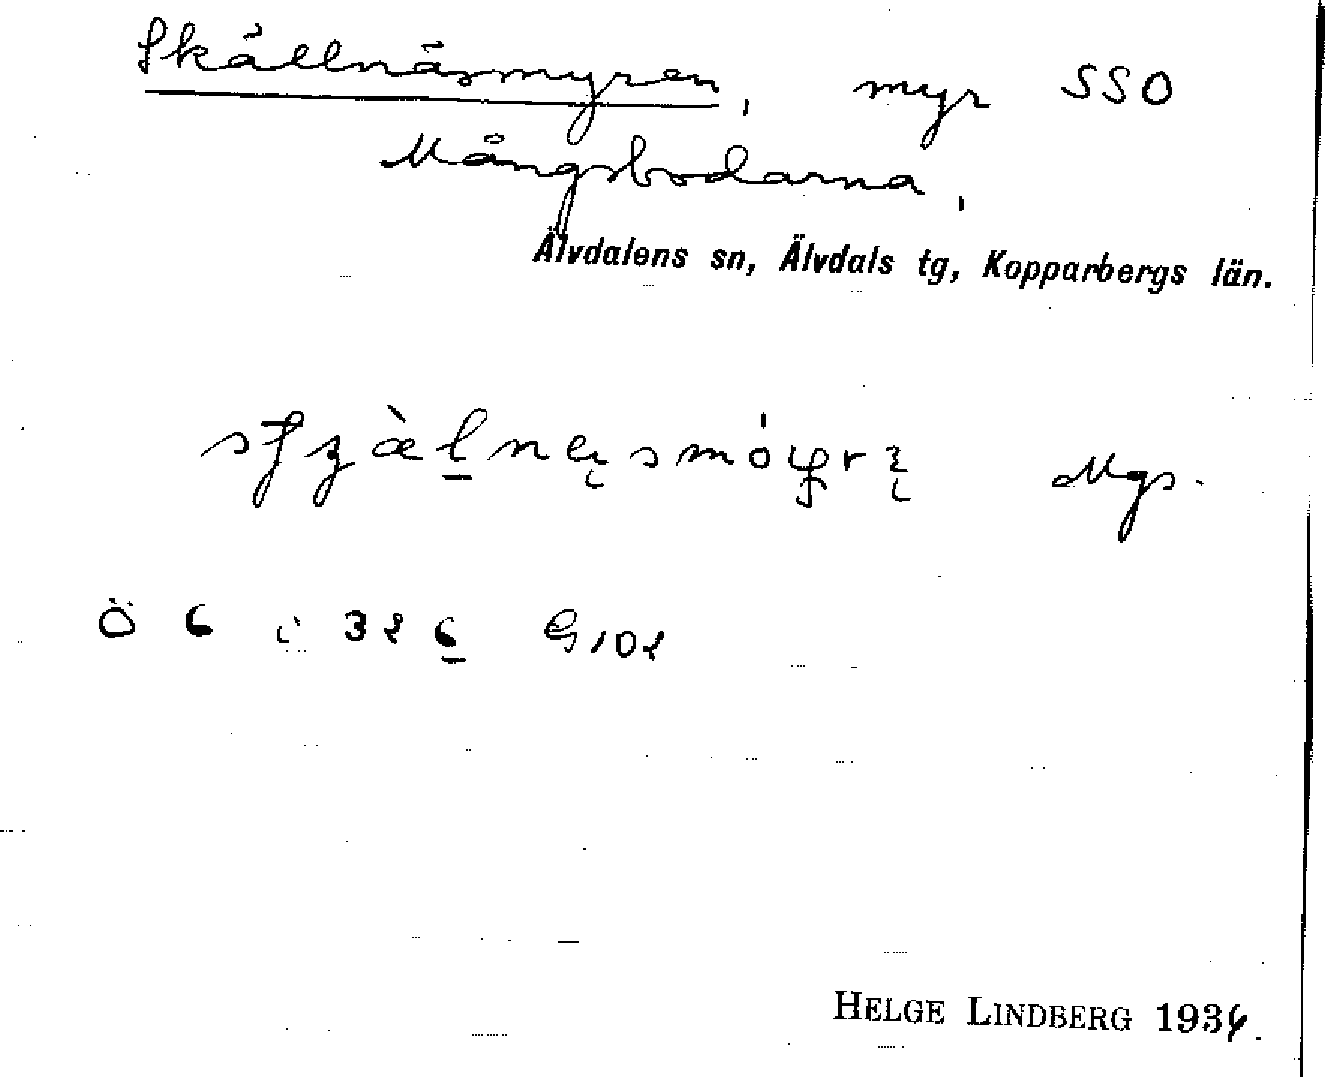 Skällnäsmyren, myr SSO
Mångsbodarna,
Älvdalens sn, Älvdals tg, Kopparbergs län.
Mgs.
Ö 6 i 32 6 G 102
HELGE LINDBERG 1936.